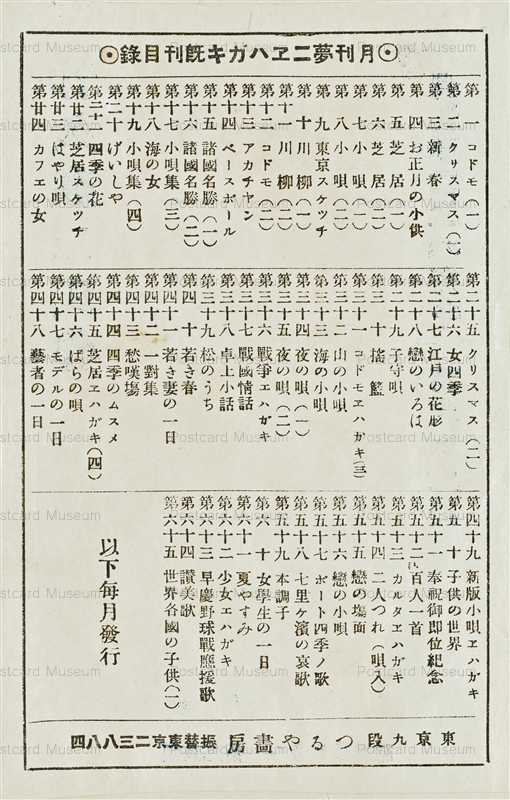 ◉月刊夢二ヱハカキ既刊目錄◉
第一 コドモ(一)
第二 クリスマス(一)
第三 新春
第四 お正月の小供
第五 芝居(一)
第六 芝居(二)
第七 小唄(一)
第八 小唄(二)
第九 東京スケツチ
第十 川柳(一)
第十一 川柳(二)
第十二 コドモ(二)
第十三 アカチヤン
第十四 ベースボール
第十五 諸國名勝(一)
第十六 諸國名勝(二)
第十七 小唄集(三)
第十八 海の女
第十九 小唄集(四)
第二十 げいしや
第二十一 四季の花
第廿二 芝居スケッチ
第廿三 はやり唄
第廿四 カフエの女
第二十五 クリスマス(二)
第二十六 女四季
第二十七 江戸の花形
第二十八 戀のいろは
第二十九 子守唄
第三十 搖籃
第三十一 コドモヱハガキ(三)
第三十二 山の小唄
第三十三 海の小唄
第三十四 夜の唄(一)
第三十五 夜の唄(二)
第三十六 戰爭エハガキ
第三十七 戰國情話
第三十八 卓上小話
第三十九 松のうち
第四十 若き春
第四十一 若き妻の一日
第四十二 一對集
第四十三 愁嘆塲
第四十四 四季のムスメ
第四十五 芝居ヱハガキ(四)
第四十六 ばらの唄
第四十七 モデルの一日
第四十八 藝者の一日
第四十九 新版小唄ヱハガキ
第五十 子供の世界
第五十一 奉祝御即位紀念
第五十二 百人一首
第五十三 カルタヱハガキ
第五十四 二人つれ(唄入)
第五十五 戀の塲面
第五十六 戀の小唄
第五十七 ボート四季ノ歌
第五十八 七里ヶ濱の哀歌
第五十九 本調子
第六十 女學生の一日
第六十一 夏やすみ
第六十二 少女エハガキ
第六十三 早慶野球戰應援歌
第六十四 讃美歌
第六十五 世界各國の子供(一)
以下每月發行
東京九段 つるや畵房 振替東京二三八八四